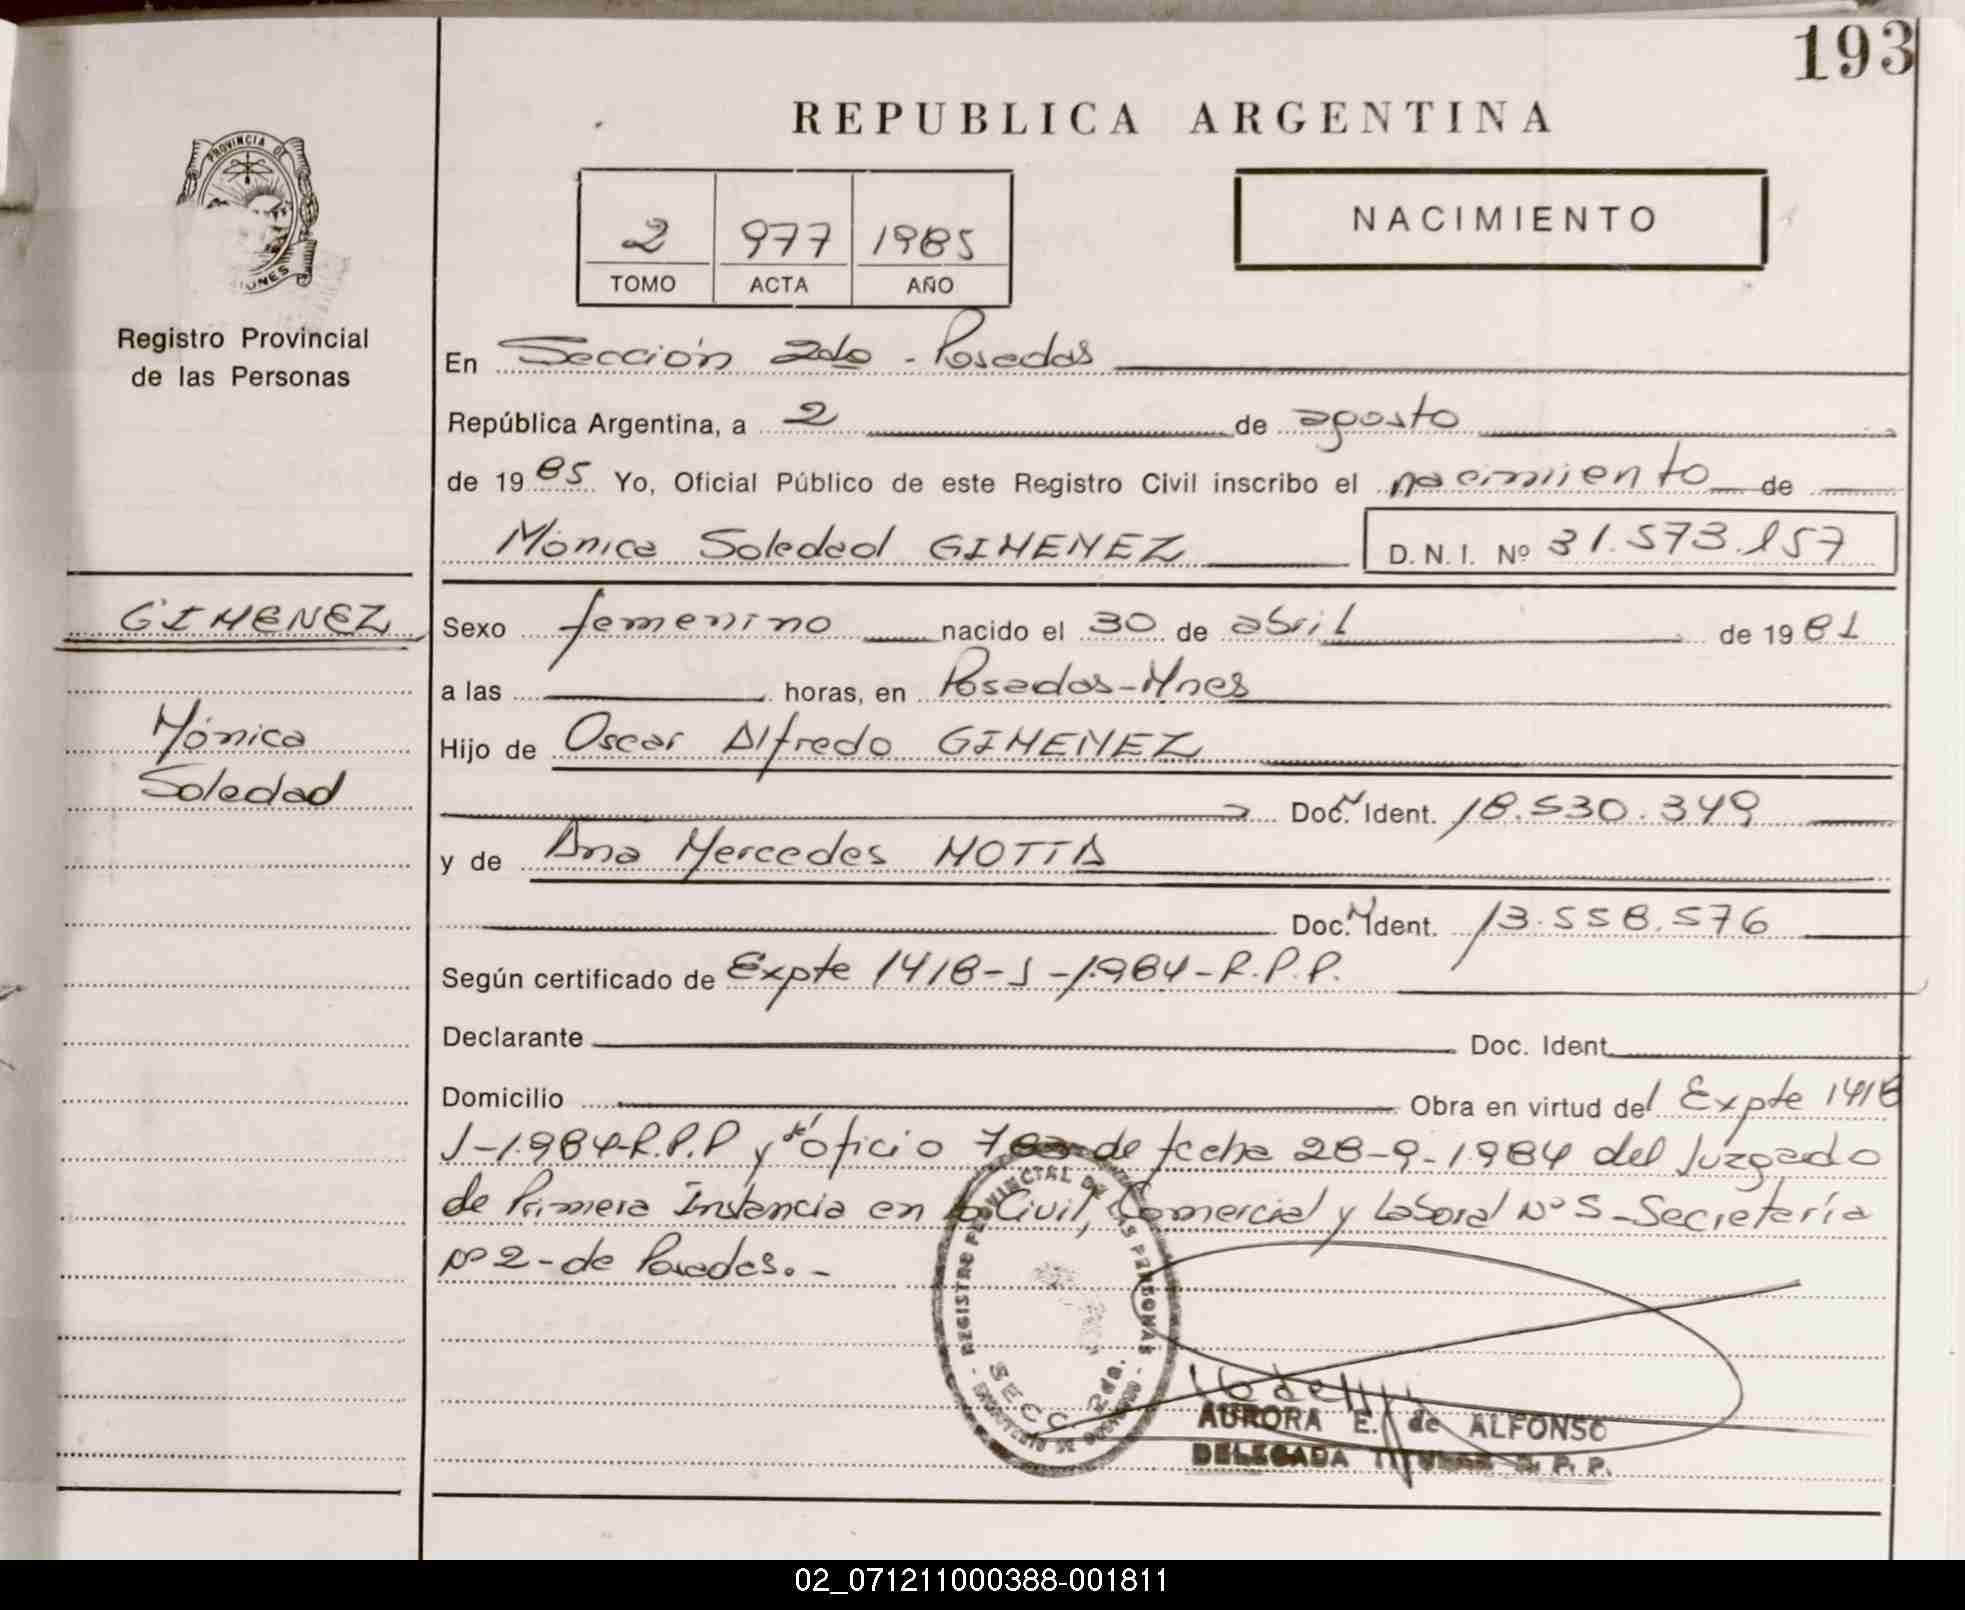 193
REPUBLICA ARGENTINA
PROVINCIA DE
IONES
Registro Provincial
de las Personas
2 977 1985
TOMO ACTA AÑO
NACIMIENTO
En Sección 2da - Posadas
República Argentina, a 2 de agosto
de 1985 Yo, Oficial Público de este Registro Civil inscribo el nacimiento de
Mónica Soledad GIMENEZ D.N.I. Nº 31.573.157
GIMENEZ
Mónica
Soledad
Sexo femenino nacido el 30 de abril de 1981
a las horas, en Posadas-Mnes
Hijo de Oscar Alfredo GIMENEZ
Doc. N Ident. 18.530.349
y de Ana Mercedes MOTTA
Doc. N Ident. 13.558.576
Según certificado de Expte 1418-J-1984-R.P.P.
Declarante Doc. Ident
Domicilio Obra en virtud del Expte 1418
J-1984-R.P.P y oficio de fecha 28-9-1984 del Juzgado
de Primera Instancia en lo Civil, Comercial y Laboral Nº 5-Secretaría
Nº 2-de Posadas.-
REGISTRO PROVINCIAL DE LAS PERSONAS
SECC. 2da.
AURORA E. de ALFONSO
DELEGADA TITULAR R. P. P.
02_071211000388-001811